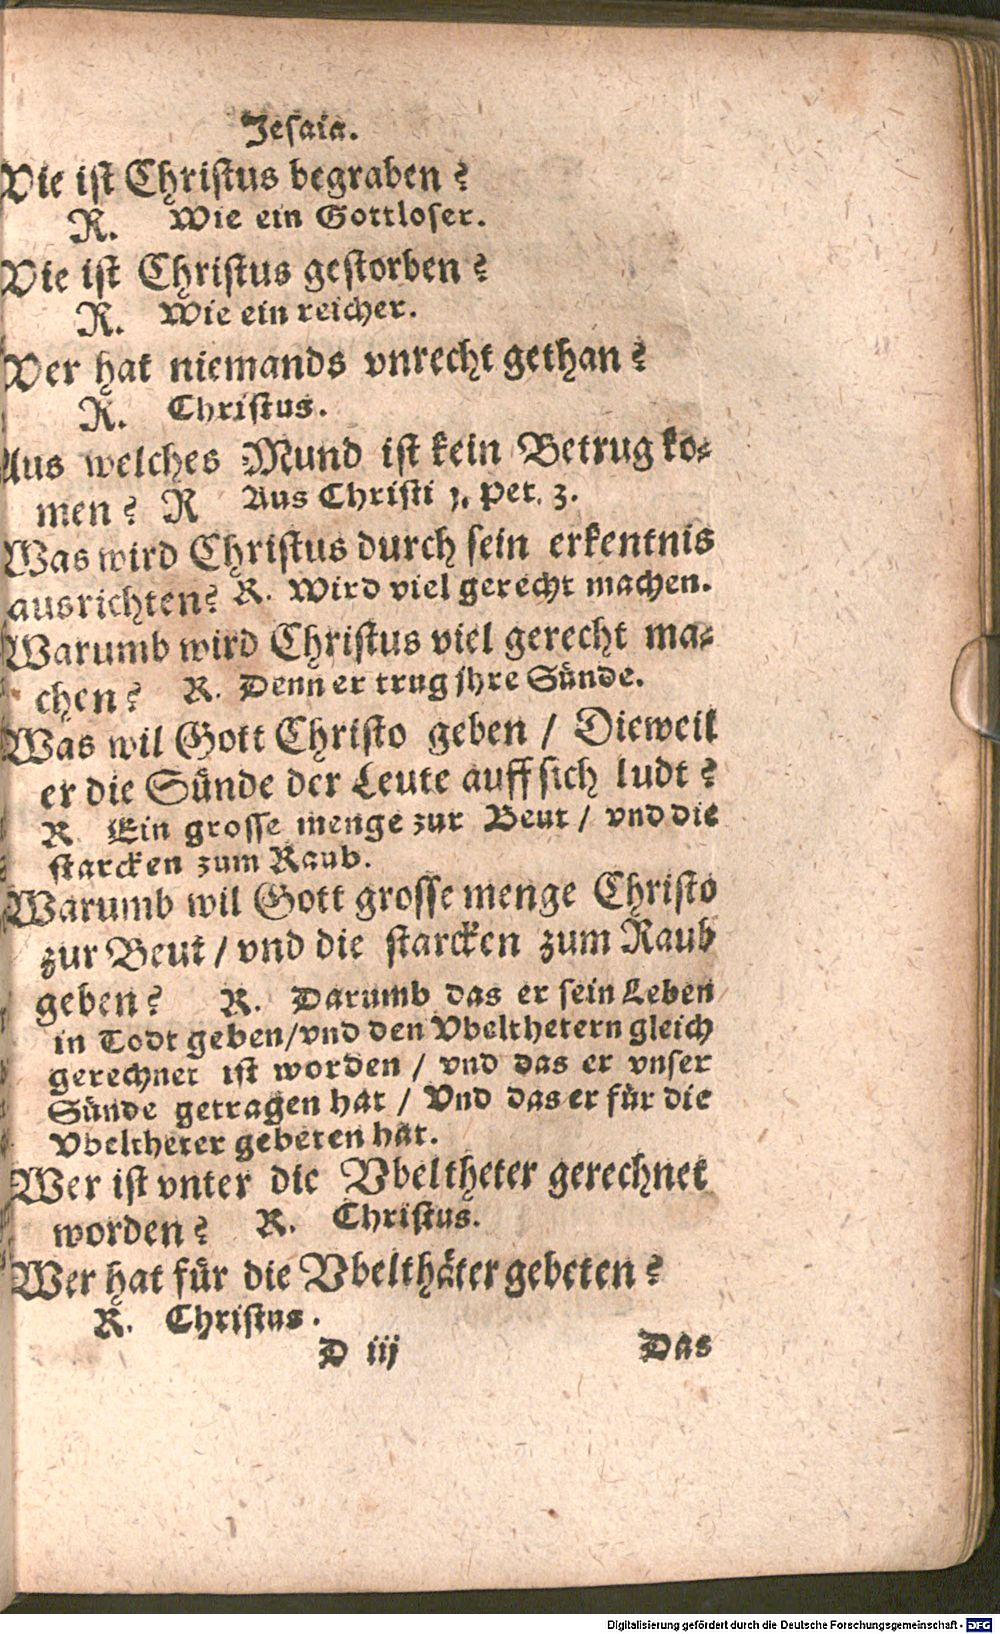 Jesaia.
Wie ist Christus begraben?
R. Wie ein Gottloser.
Wie ist Christus gestorben?
R. Wie ein reicher.
Wer hat niemands vnrecht gethan?
R. Christus.
Aus welches Mund ist kein Betrug ko-
men? R Aus Christi 1. Pet. 3.
Was wird Christus durch sein erkentnis
ausrichten? R. Wird viel gerecht machen.
Warumb wird Christus viel gerecht ma-
chen? R. Denn er trug jhre Sünde.
Was wil Gott Christo geben / Dieweil
er die Sünde der Leute auff sich ludt?
R Ein grosse menge zur Beut / vnd die
starcken zum Raub.
Warumb wil Gott grosse menge Christo
zur Beut / vnd die starcken zum Raub
geben? R. Darumb das er sein Leben
in Todt geben/vnd den Vbelthetern gleich
gerechnet ist worden / vnd das er vnser
Sünde getragen hat / Vnd das er für die
Vbeltheter gebeten hat.
Wer ist vnter die Vbeltheter gerechnet
worden? R. Christus.
Wer hat für die Vbelthäter gebeten?
R. Christus.
D iij Das
Digitalisierung gefördert durch die Deutsche Forschungsgemeinschaft - DFG